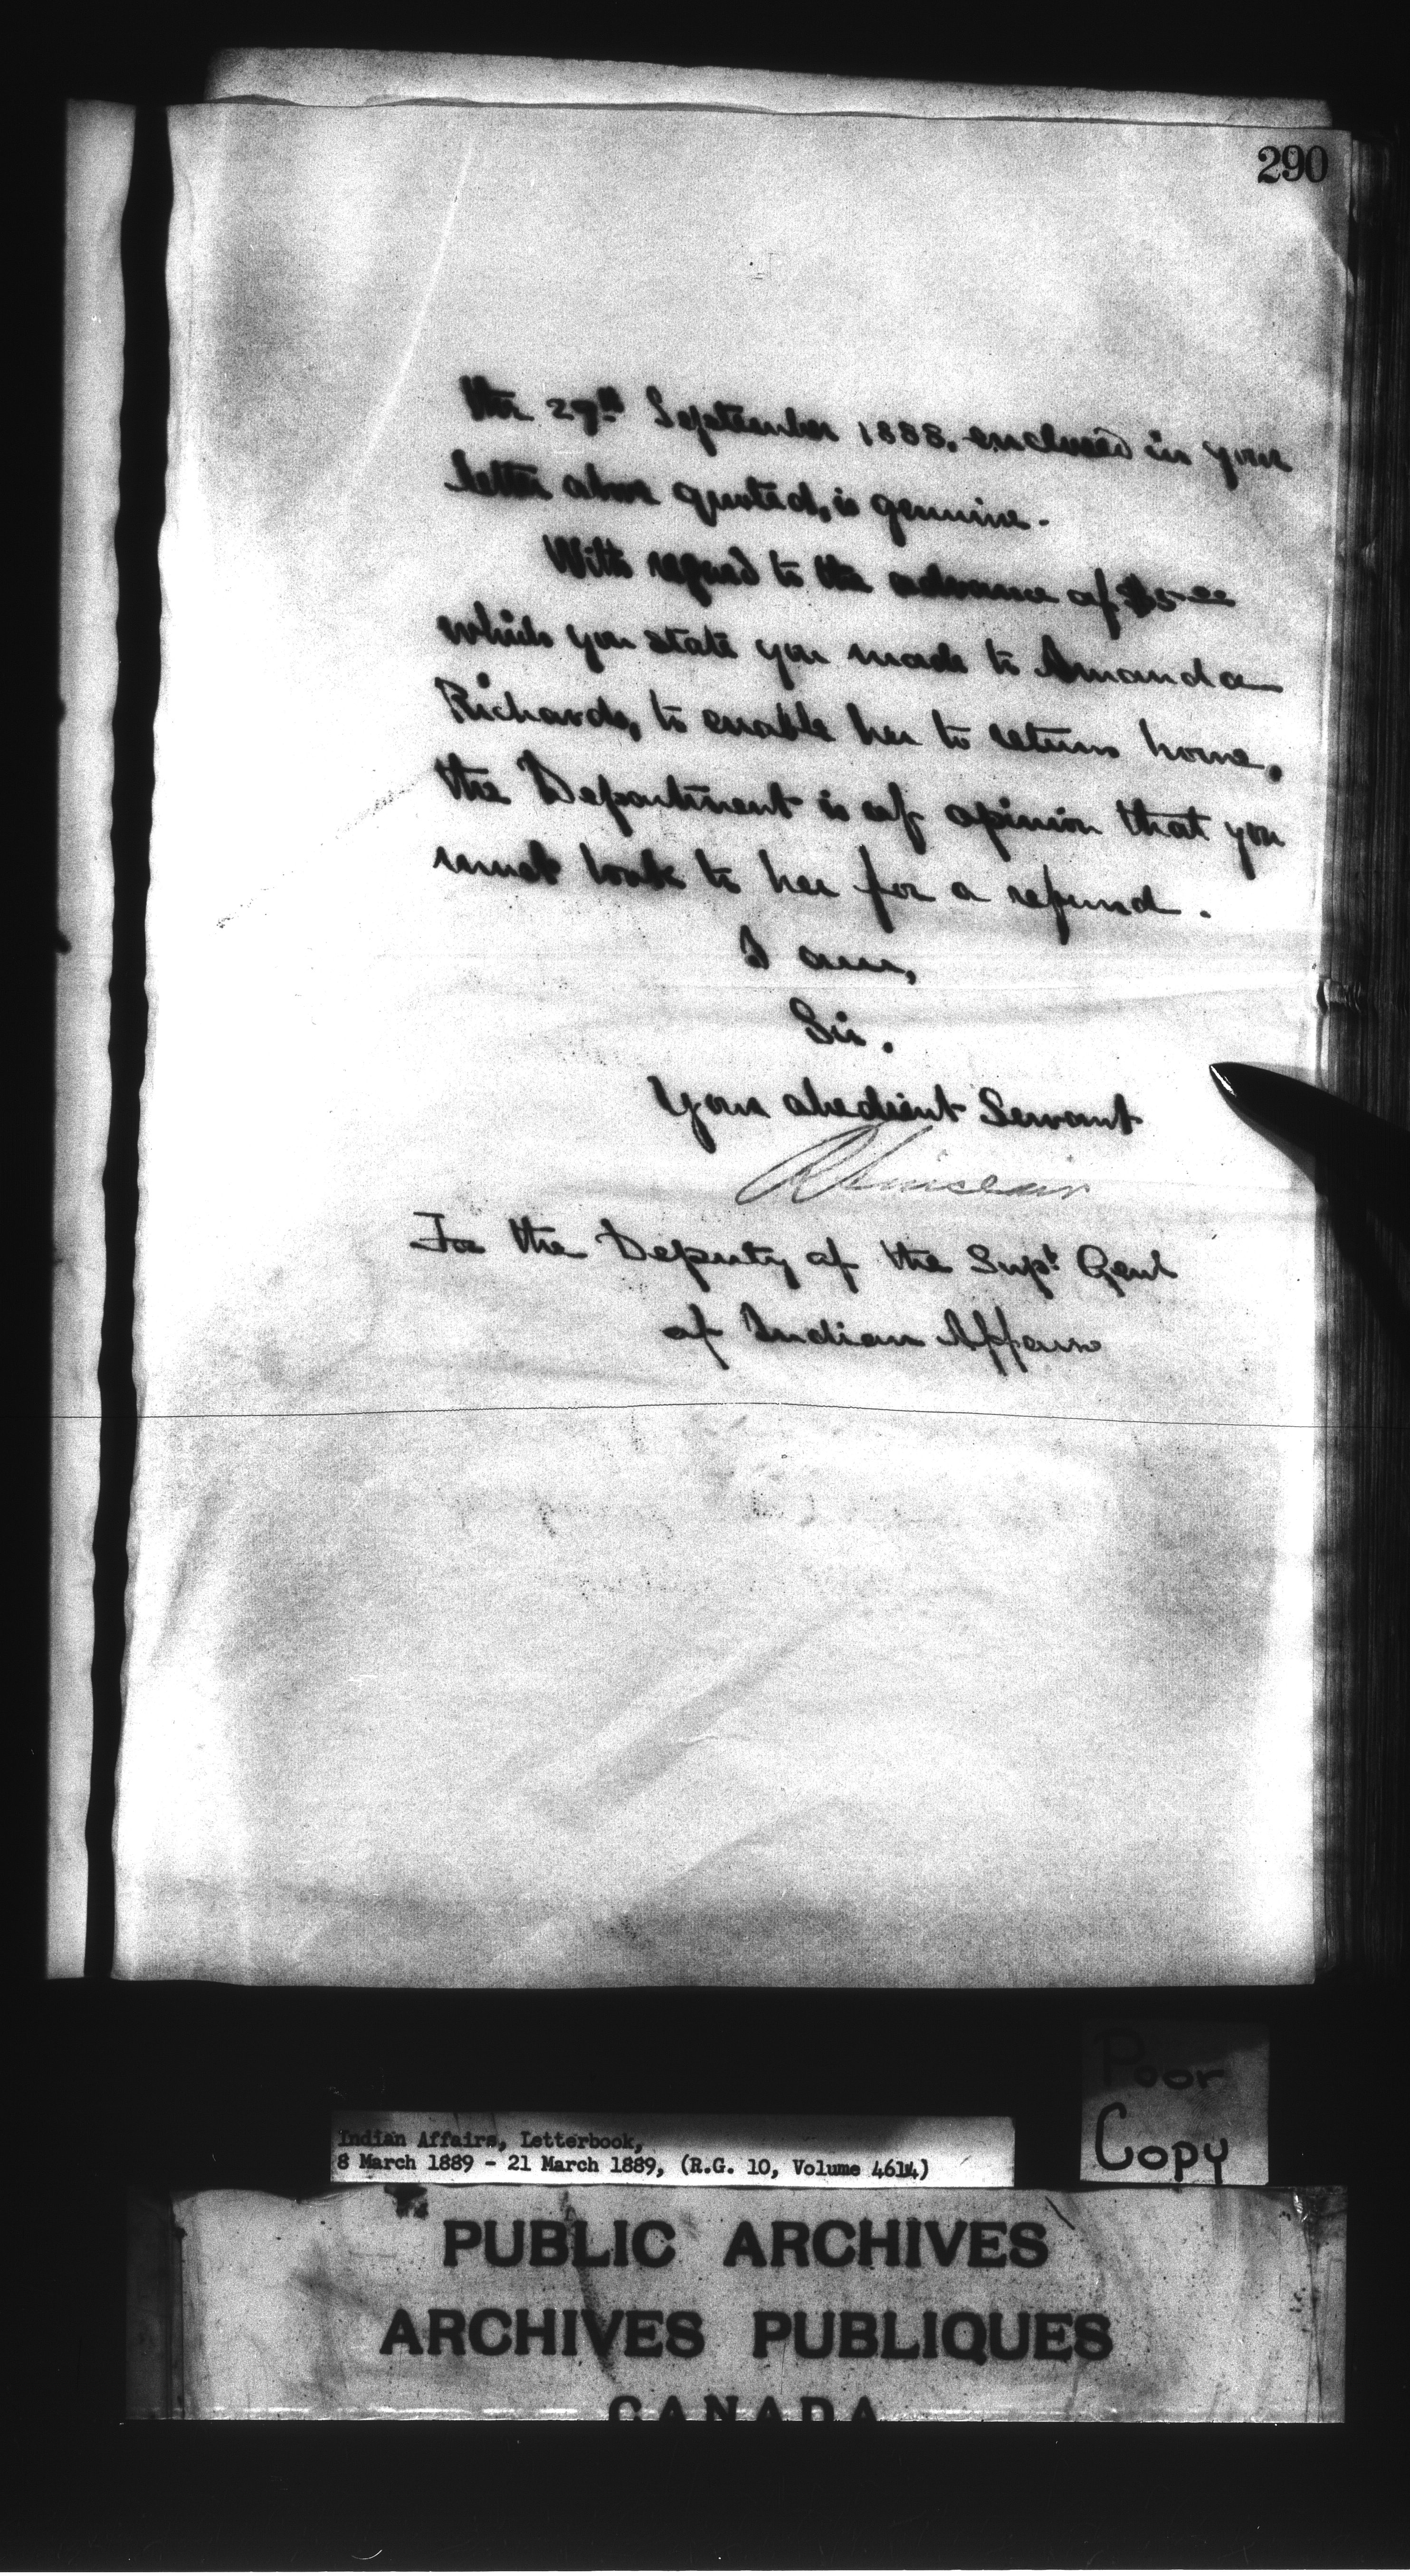 290
the 27th September 1888. enclosed in your
letter above quoted, is genuine.
With regard to the advance of $5.00
which you state you made to Amanda
Richards, to enable her to return home,
the Department is of opinion that you
must look to her for a refund.
I am,
Sir.
Your obedient Servant
R Sinclair
For the Deputy of the Supt. Genl
of Indian Affairs
Poor
Copy
Indian Affairs, Letterbook,
8 March 1889 - 21 March 1889, (R.G. 10, Volume 4614)
PUBLIC ARCHIVES
ARCHIVES PUBLIQUES
CANADA